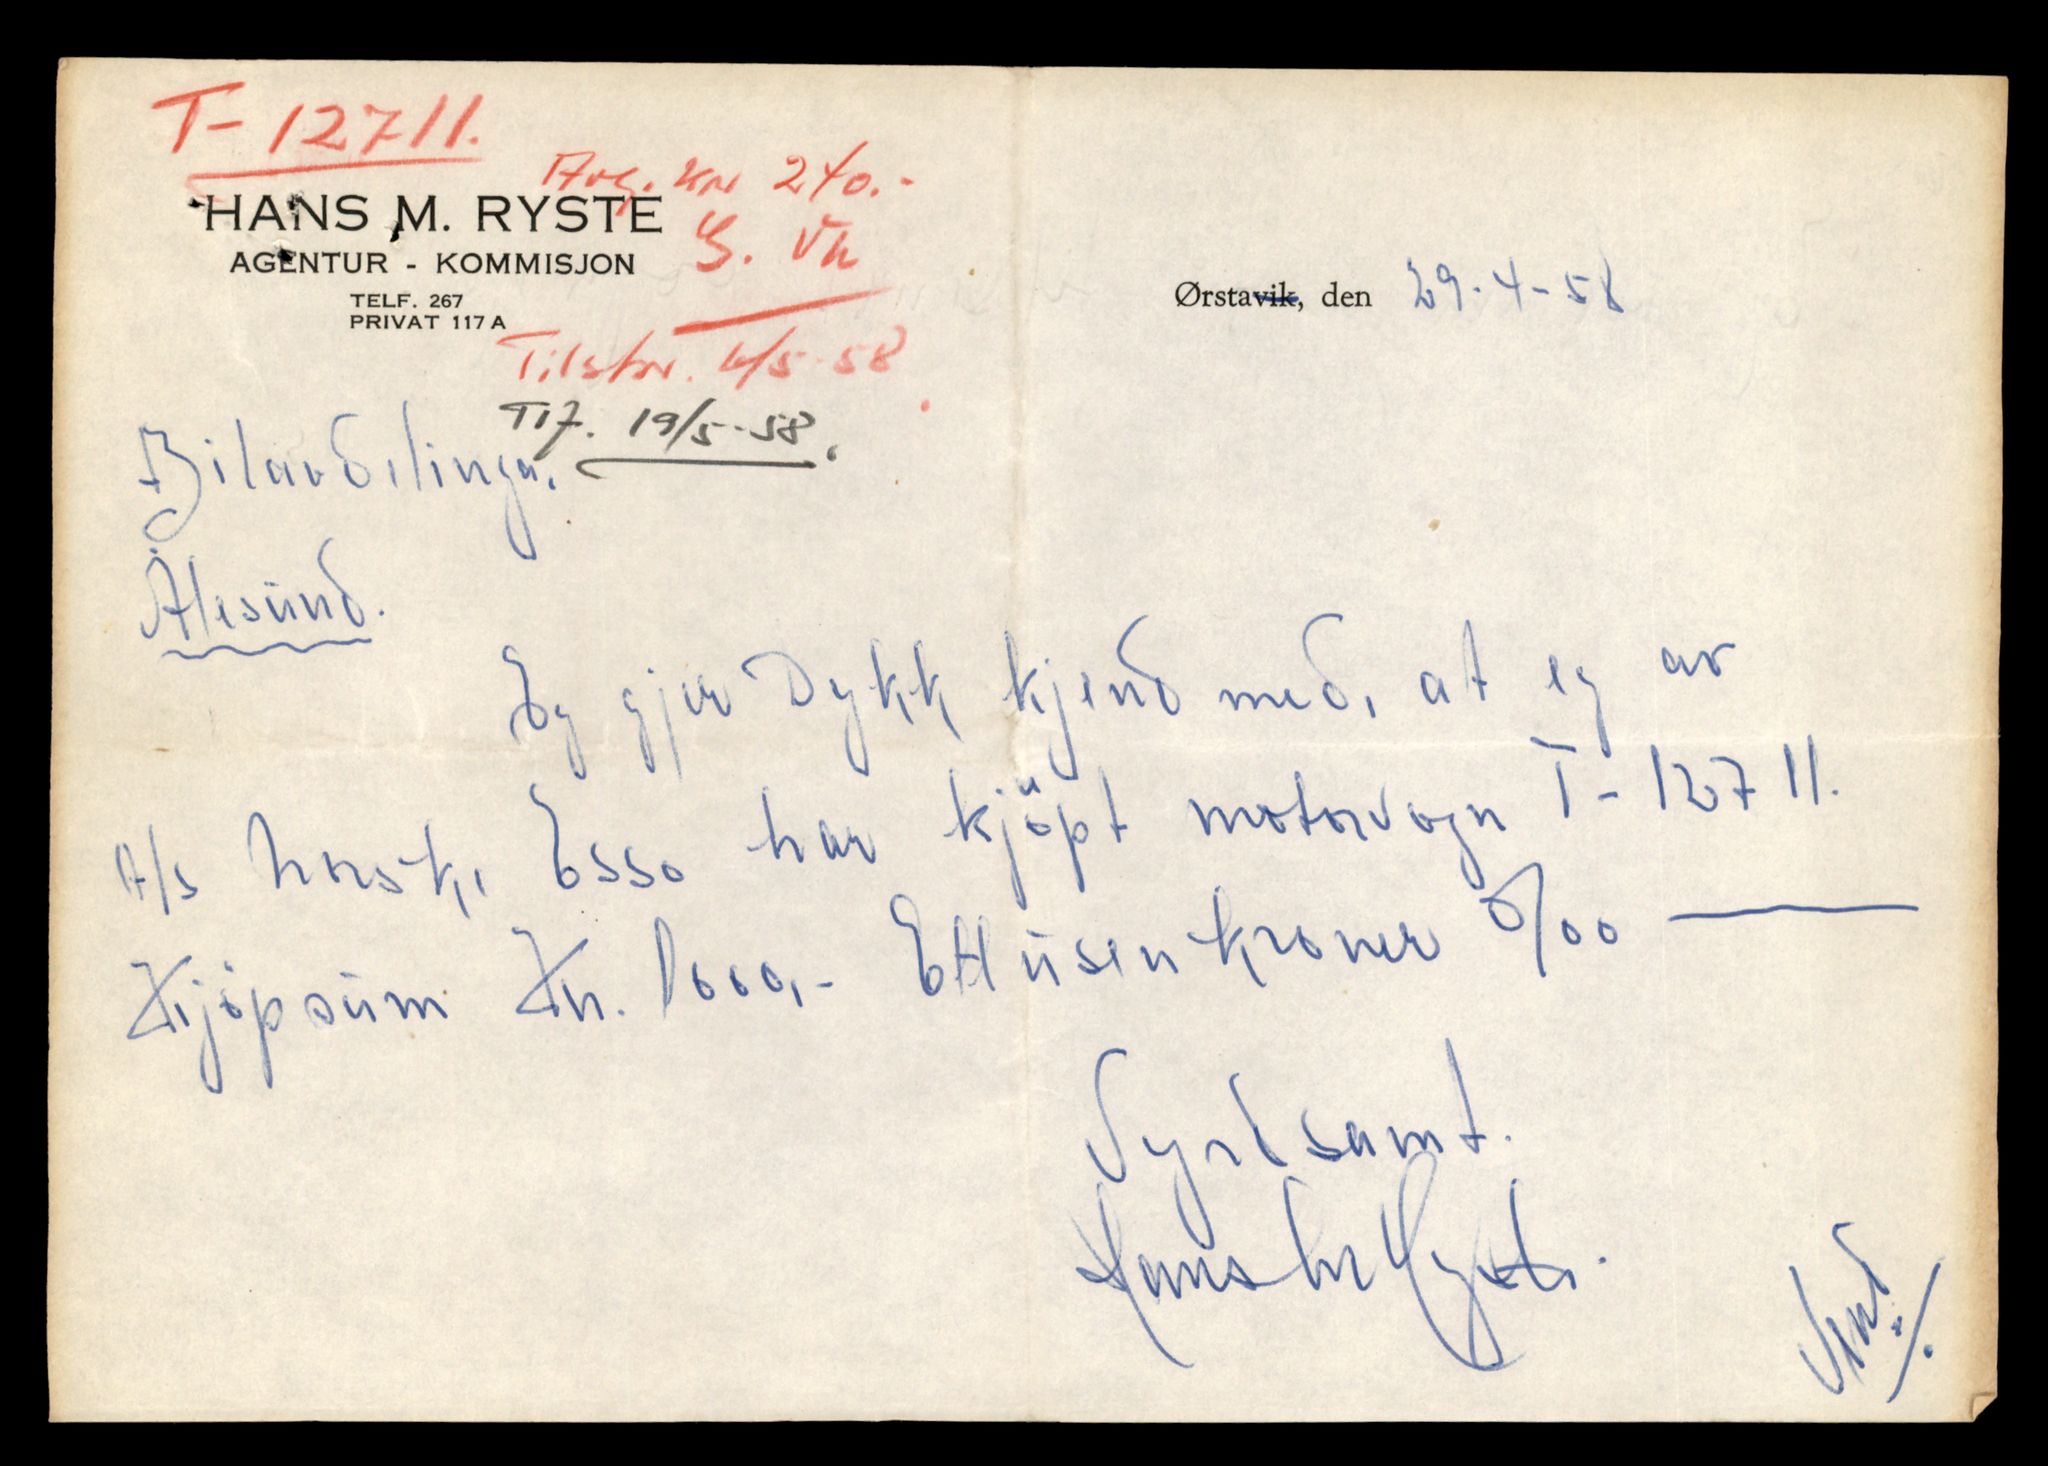 T- 12711.
Avg. kr 240.-
HANS M. RYSTE
AGENTUR - KOMMISJON
TELF. 267
PRIVAT 117 A
Tilskr. 6/5-58
Tlf. 19/5-58.
Ørstavik, den 29-4-58
Bilavdelinga.
Ålesund.
Eg gjer Dykk kjend med, at eg av
A/S Norsk, Esso har kjöpt motorvogn T- 12711.
Kjöpsum Kr. 1000,- Ettusenkroner 0/00
Vyrdsamt.
Hans M Ryste.